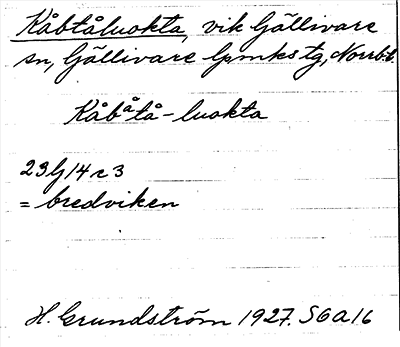 Kåbtåluokta, vik Gällivare
sn, Gällivare lpmks tg, Norrb.l.
Kåbᵃ̊tå-luokta
23 G 14 c 3
= bredviken
H. Grundström 1927. S6a16